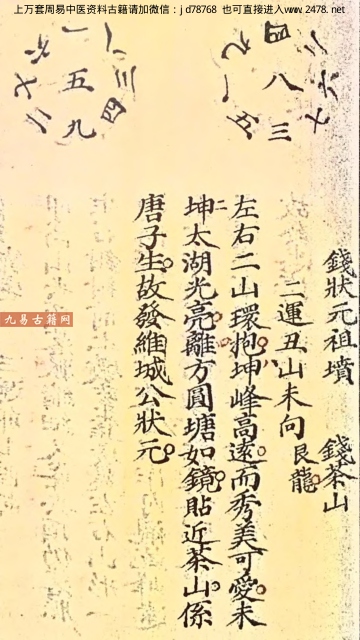 上万套周易中医资料古籍请加微信：jd78768 也可直接进入www.2478.net
錢狀元祖墳 錢茶山
二運丑山未向 艮龍
左右二山環抱坤峰高遠而秀美可愛未
坤太湖光亮離方圓塘如鏡貼近茶山係
唐子生故發維城公狀元
九易古籍网